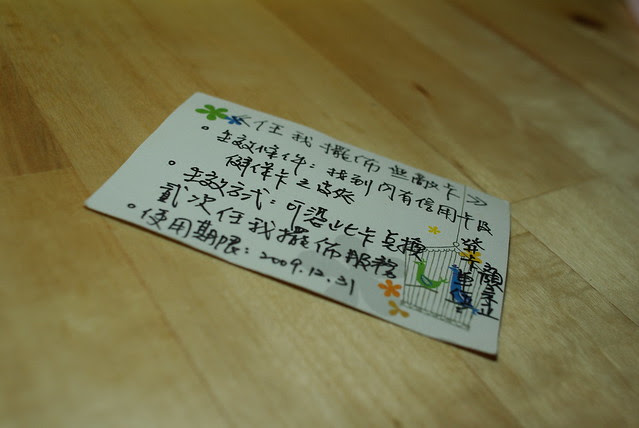 <任我擺佈無敵卡>
•生效條件：找到內有信用卡及
健保卡之皮夾
•生效方式：可憑此卡兌換
貳次任我擺佈服務
•使用期限：2009.12.31
發卡單位